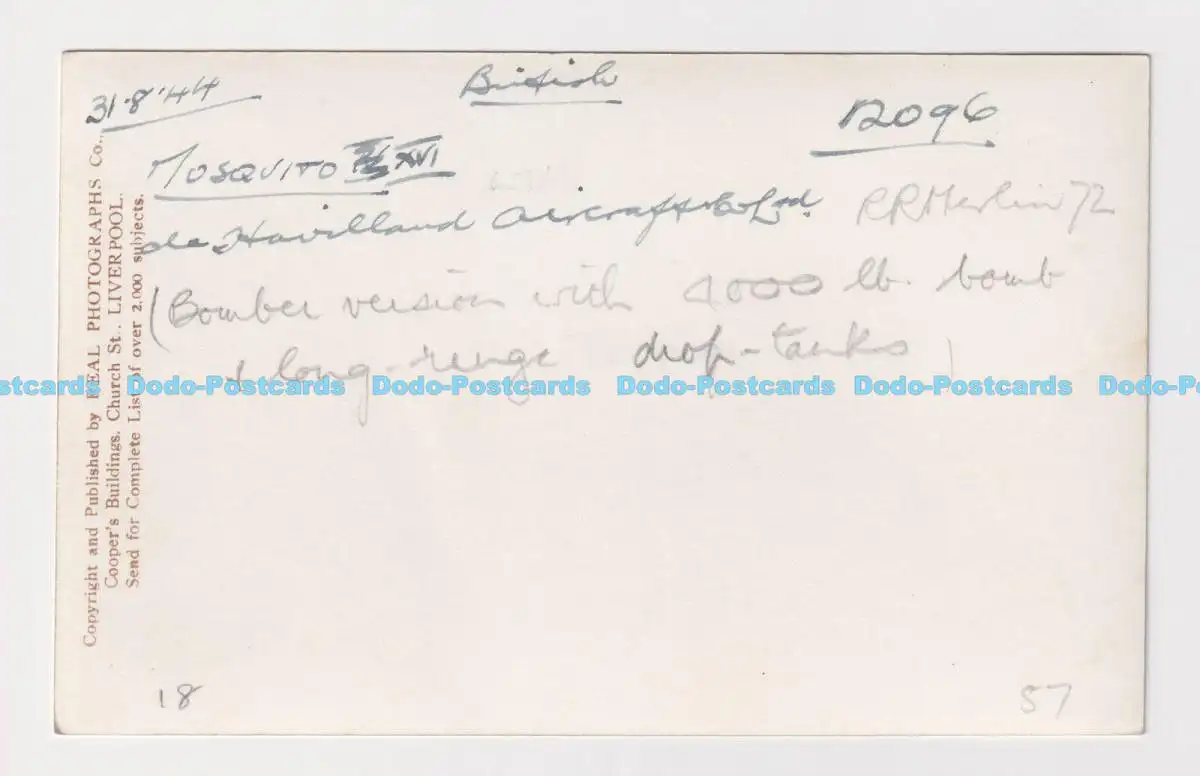 31·8·'44
British
12096
MOSQUITO XVI
de Havilland Aircraft Co Ltd.
RR Merlin 72
(Bomber version with 4000 lb. bomb
& long-range drop-tanks)
Copyright and Published by REAL PHOTOGRAPHS Co.,
Cooper's Buildings, Church St., LIVERPOOL.
Send for Complete List of over 2,000 subjects.
Dodo-Postcards Dodo-Postcards Dodo-Postcards Dodo-Postcards Dodo-Postcards
18
57